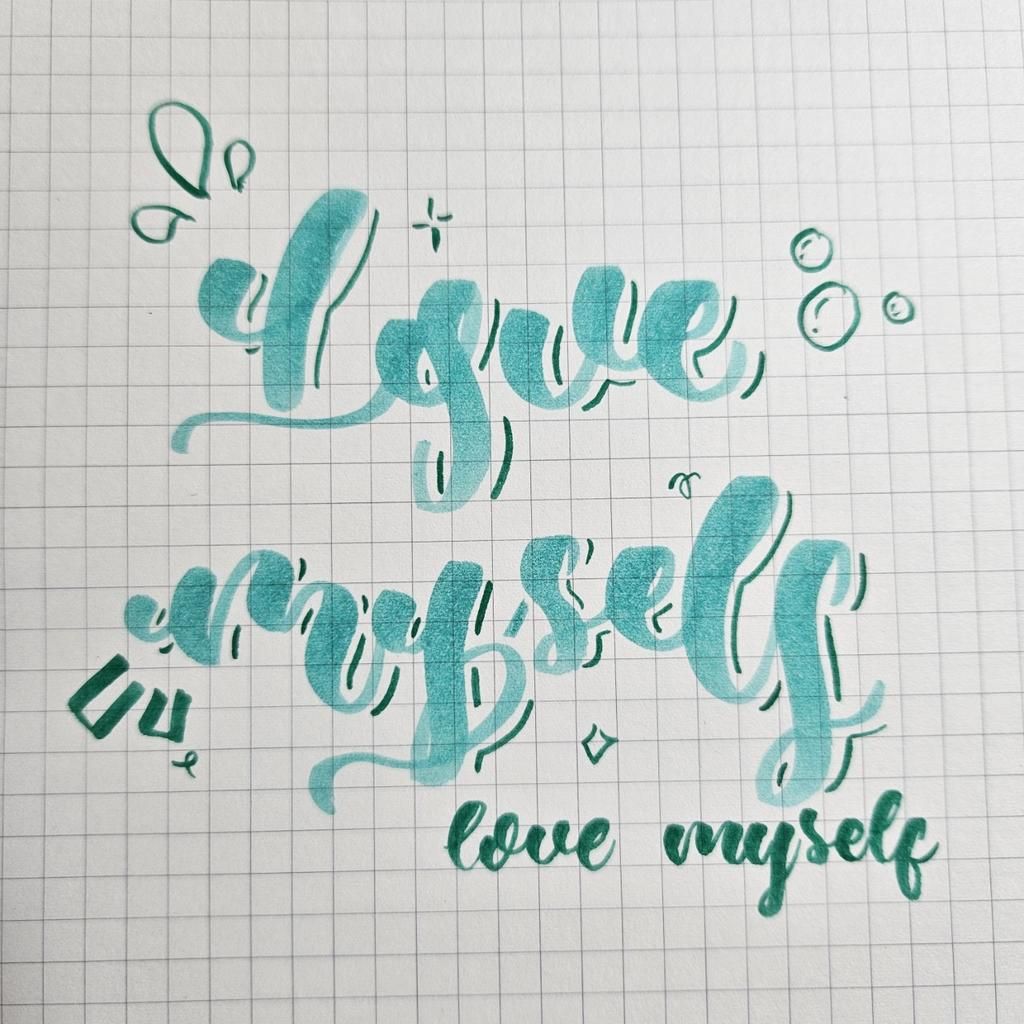 Love
myself
love myself